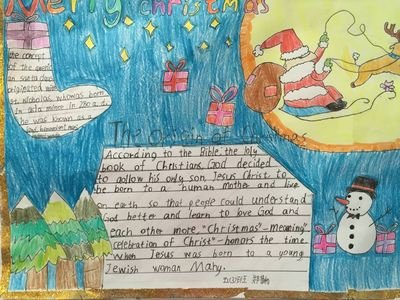 Merry christmas
the concept
of the american
an santa claus
originated with
st. Nicholas, who was born
In asia minor in 280 a.d.
who was known as a
The Origin of Christmas
According to the Bible, the holy
book of Christians, God decided
to allow his only son, Jesus Christ, to
be born to a human Mother and live
on earth so that people could understand
God better and learn to love God and
each other more. "Christmas"-meaning
celebration of Christ"-honors the time.
when Jesus was born to a young
Jewish woman Mary.